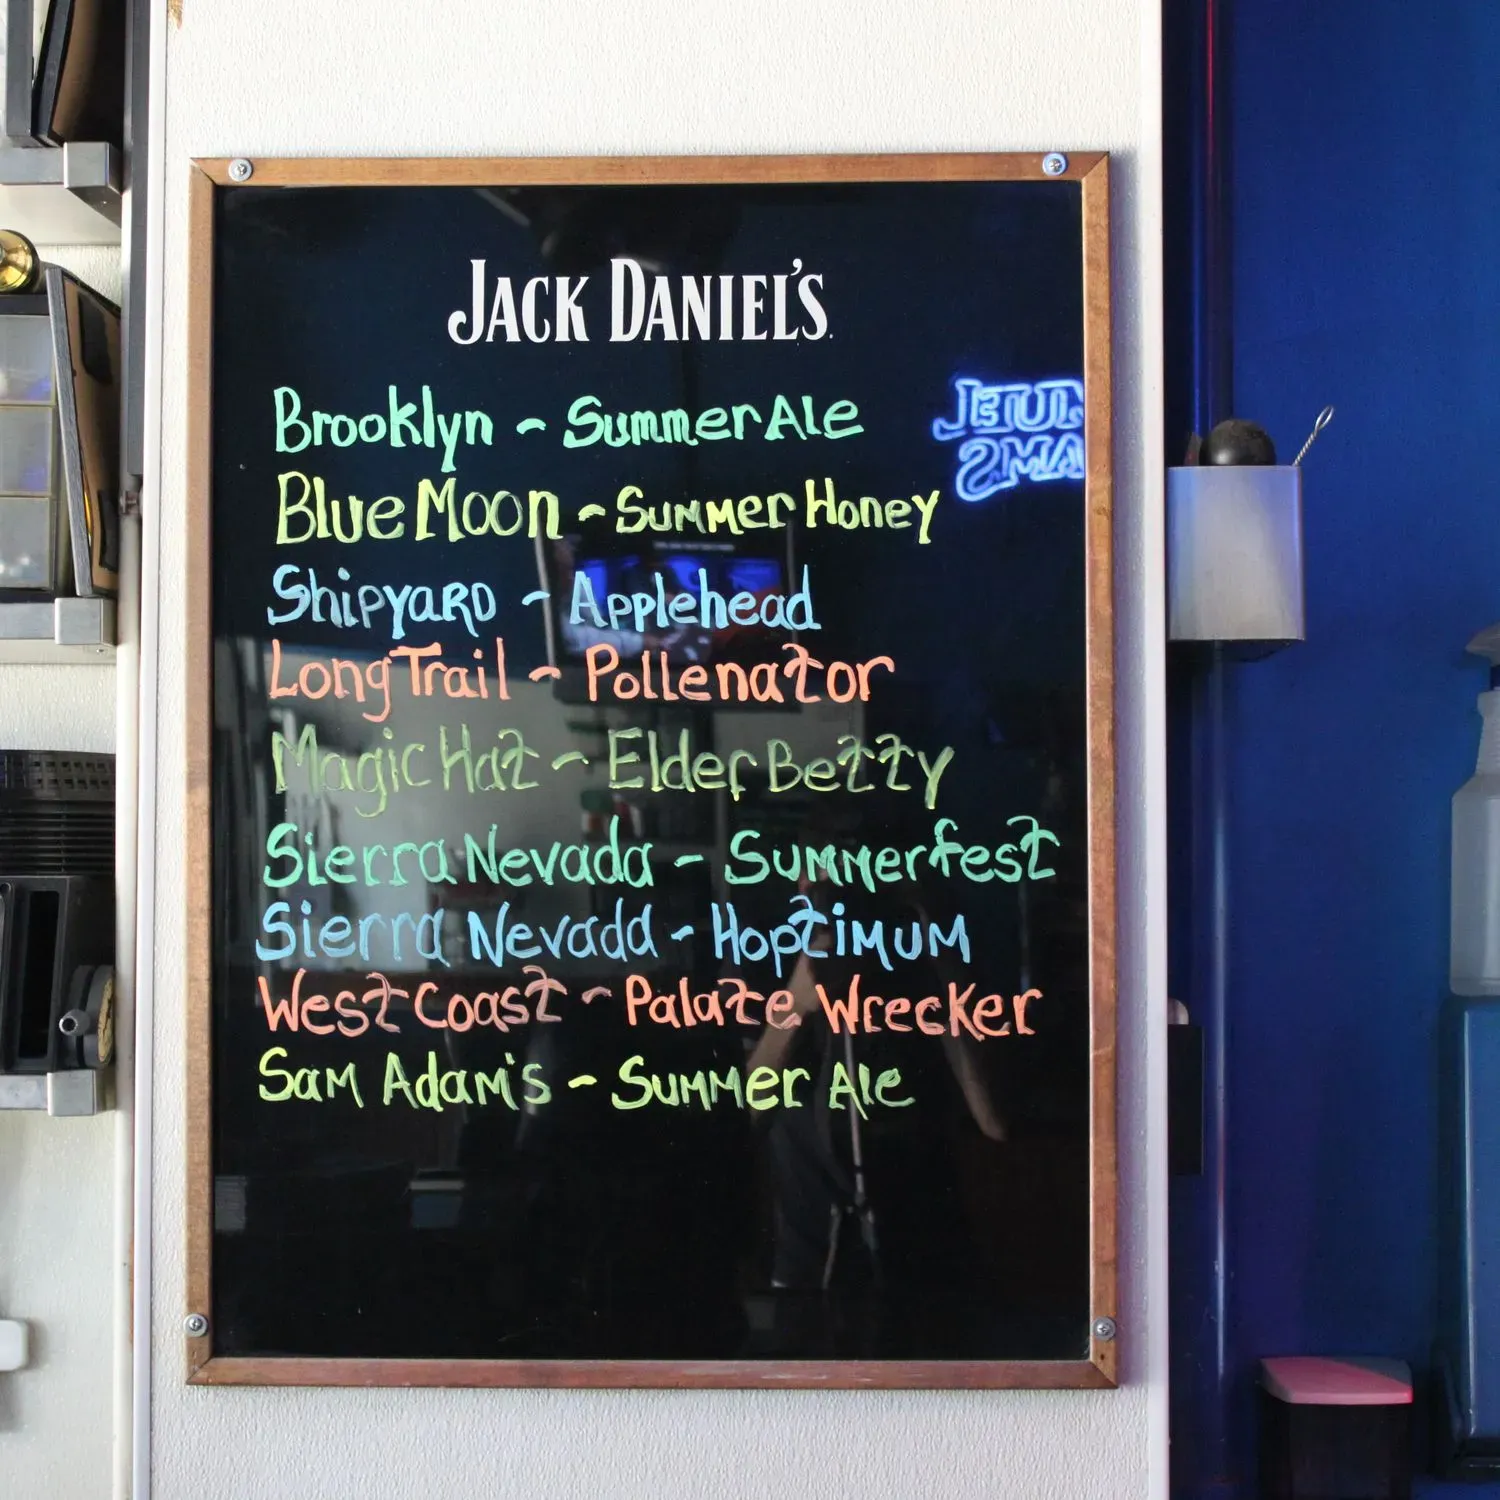 JACK DANIEL'S
Brooklyn - Summer Ale
Blue Moon - Summer Honey
Shipyard - Applehead
Long Trail - Pollenator
Magic Hat - Elder Betty
Sierra Nevada - Summerfest
Sierra Nevada - Hoptimum
West Coast - Palate Wrecker
Sam Adam's - Summer Ale